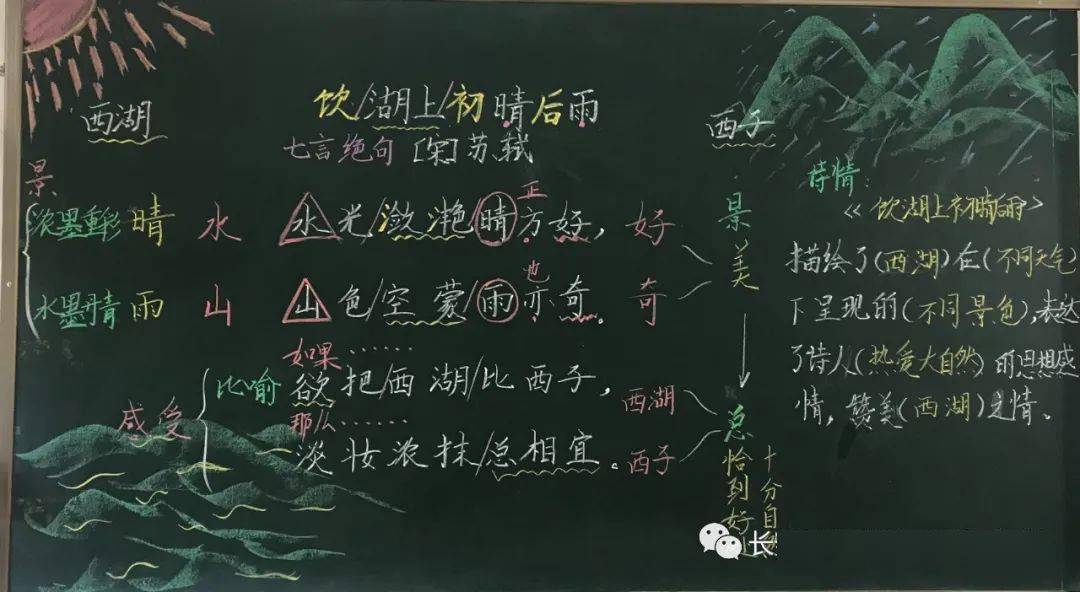 西湖
饮/湖上/初晴后雨
七言绝句 [宋]苏轼
西子
景
浓墨重彩 晴 水 水光/潋滟晴方好, 好
正
水墨丹青 雨 山 山色/空蒙/雨亦奇。 奇
也
景美
感受
比喻 欲把西湖/比西子, 西湖
如果……
那么……
淡妆浓抹/总相宜。 西子
总
恰到好
十分自
诗情:
《饮湖上初晴后雨》
描绘了(西湖)在(不同天气)
下呈现的(不同景色),表达
了诗人(热爱大自然)的思想感
情,赞美(西湖)之情。
长